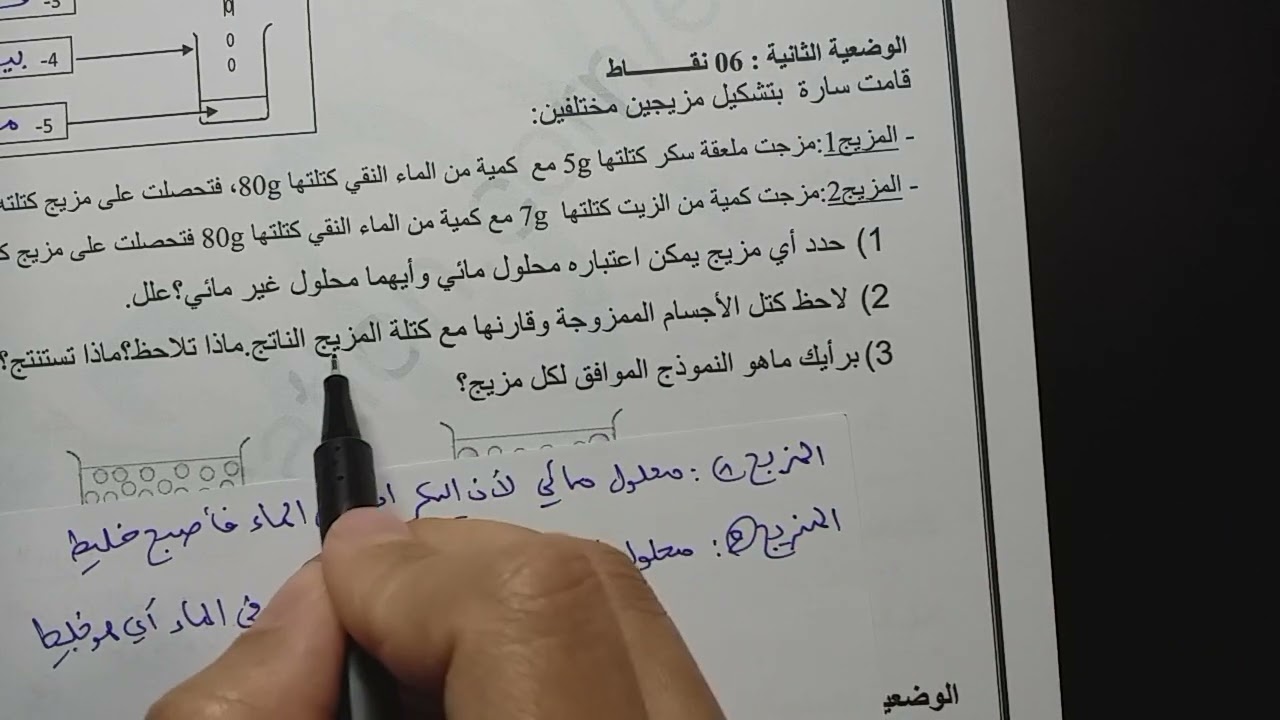 -3
-4
-5
الوضعية الثانية : 06 نقـــــــاط
قامت سارة بتشكيل مزيجين مختلفين:
- المزيج1:مزجت ملعقة سكر كتلتها 5g مع كمية من الماء النقي كتلتها 80g، فتحصلت على مزيج كتلته
- المزيج2:مزجت كمية من الزيت كتلتها 7g مع كمية من الماء النقي كتلتها 80g فتحصلت على مزيج
1) حدد أي مزيج يمكن اعتباره محلول مائي وأيهما محلول غير مائي؟علل.
2) لاحظ كتل الأجسام الممزوجة وقارنها مع كتلة المزيج الناتج.ماذا تلاحظ؟ماذا تستنتج؟
3) برأيك ماهو النموذج الموافق لكل مزيج؟
المزيج 1 : محلول مائي لأن السكر الماء فأصبح خليط
المزيج 2 : محلول
في الماء أي هو خليط
الوضعي